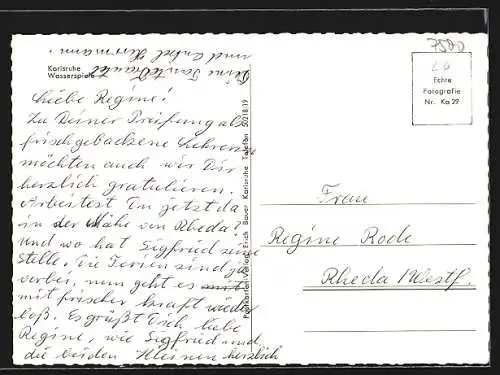 Karlsruhe
Wasserspiele
Liebe Regine!
Zu Deiner Prüfung als
frischgebackene Lehrerin
möchten auch wir Dir
herzlich gratulieren.
Arbeitest Du jetzt da
in der Nähe von Rheda?
Und wo hat Siegfried seine
Stelle. Die Ferien sind ja
vorbei, nun geht es mit
mit frischer Kraft wieder
los. Es grüßt Dich, liebe
Regine, wie Siegfried und
die beiden Kleinen herzlich
Deine Tante Trautel
und Onkel Hermann.
Postkartenverlag Erich Bauer Karlsruhe Telefon 50218/19
7500
Echte
Fotografie
Nr. Ka 29
Frau
Regine Rode
Rheda/Westf.